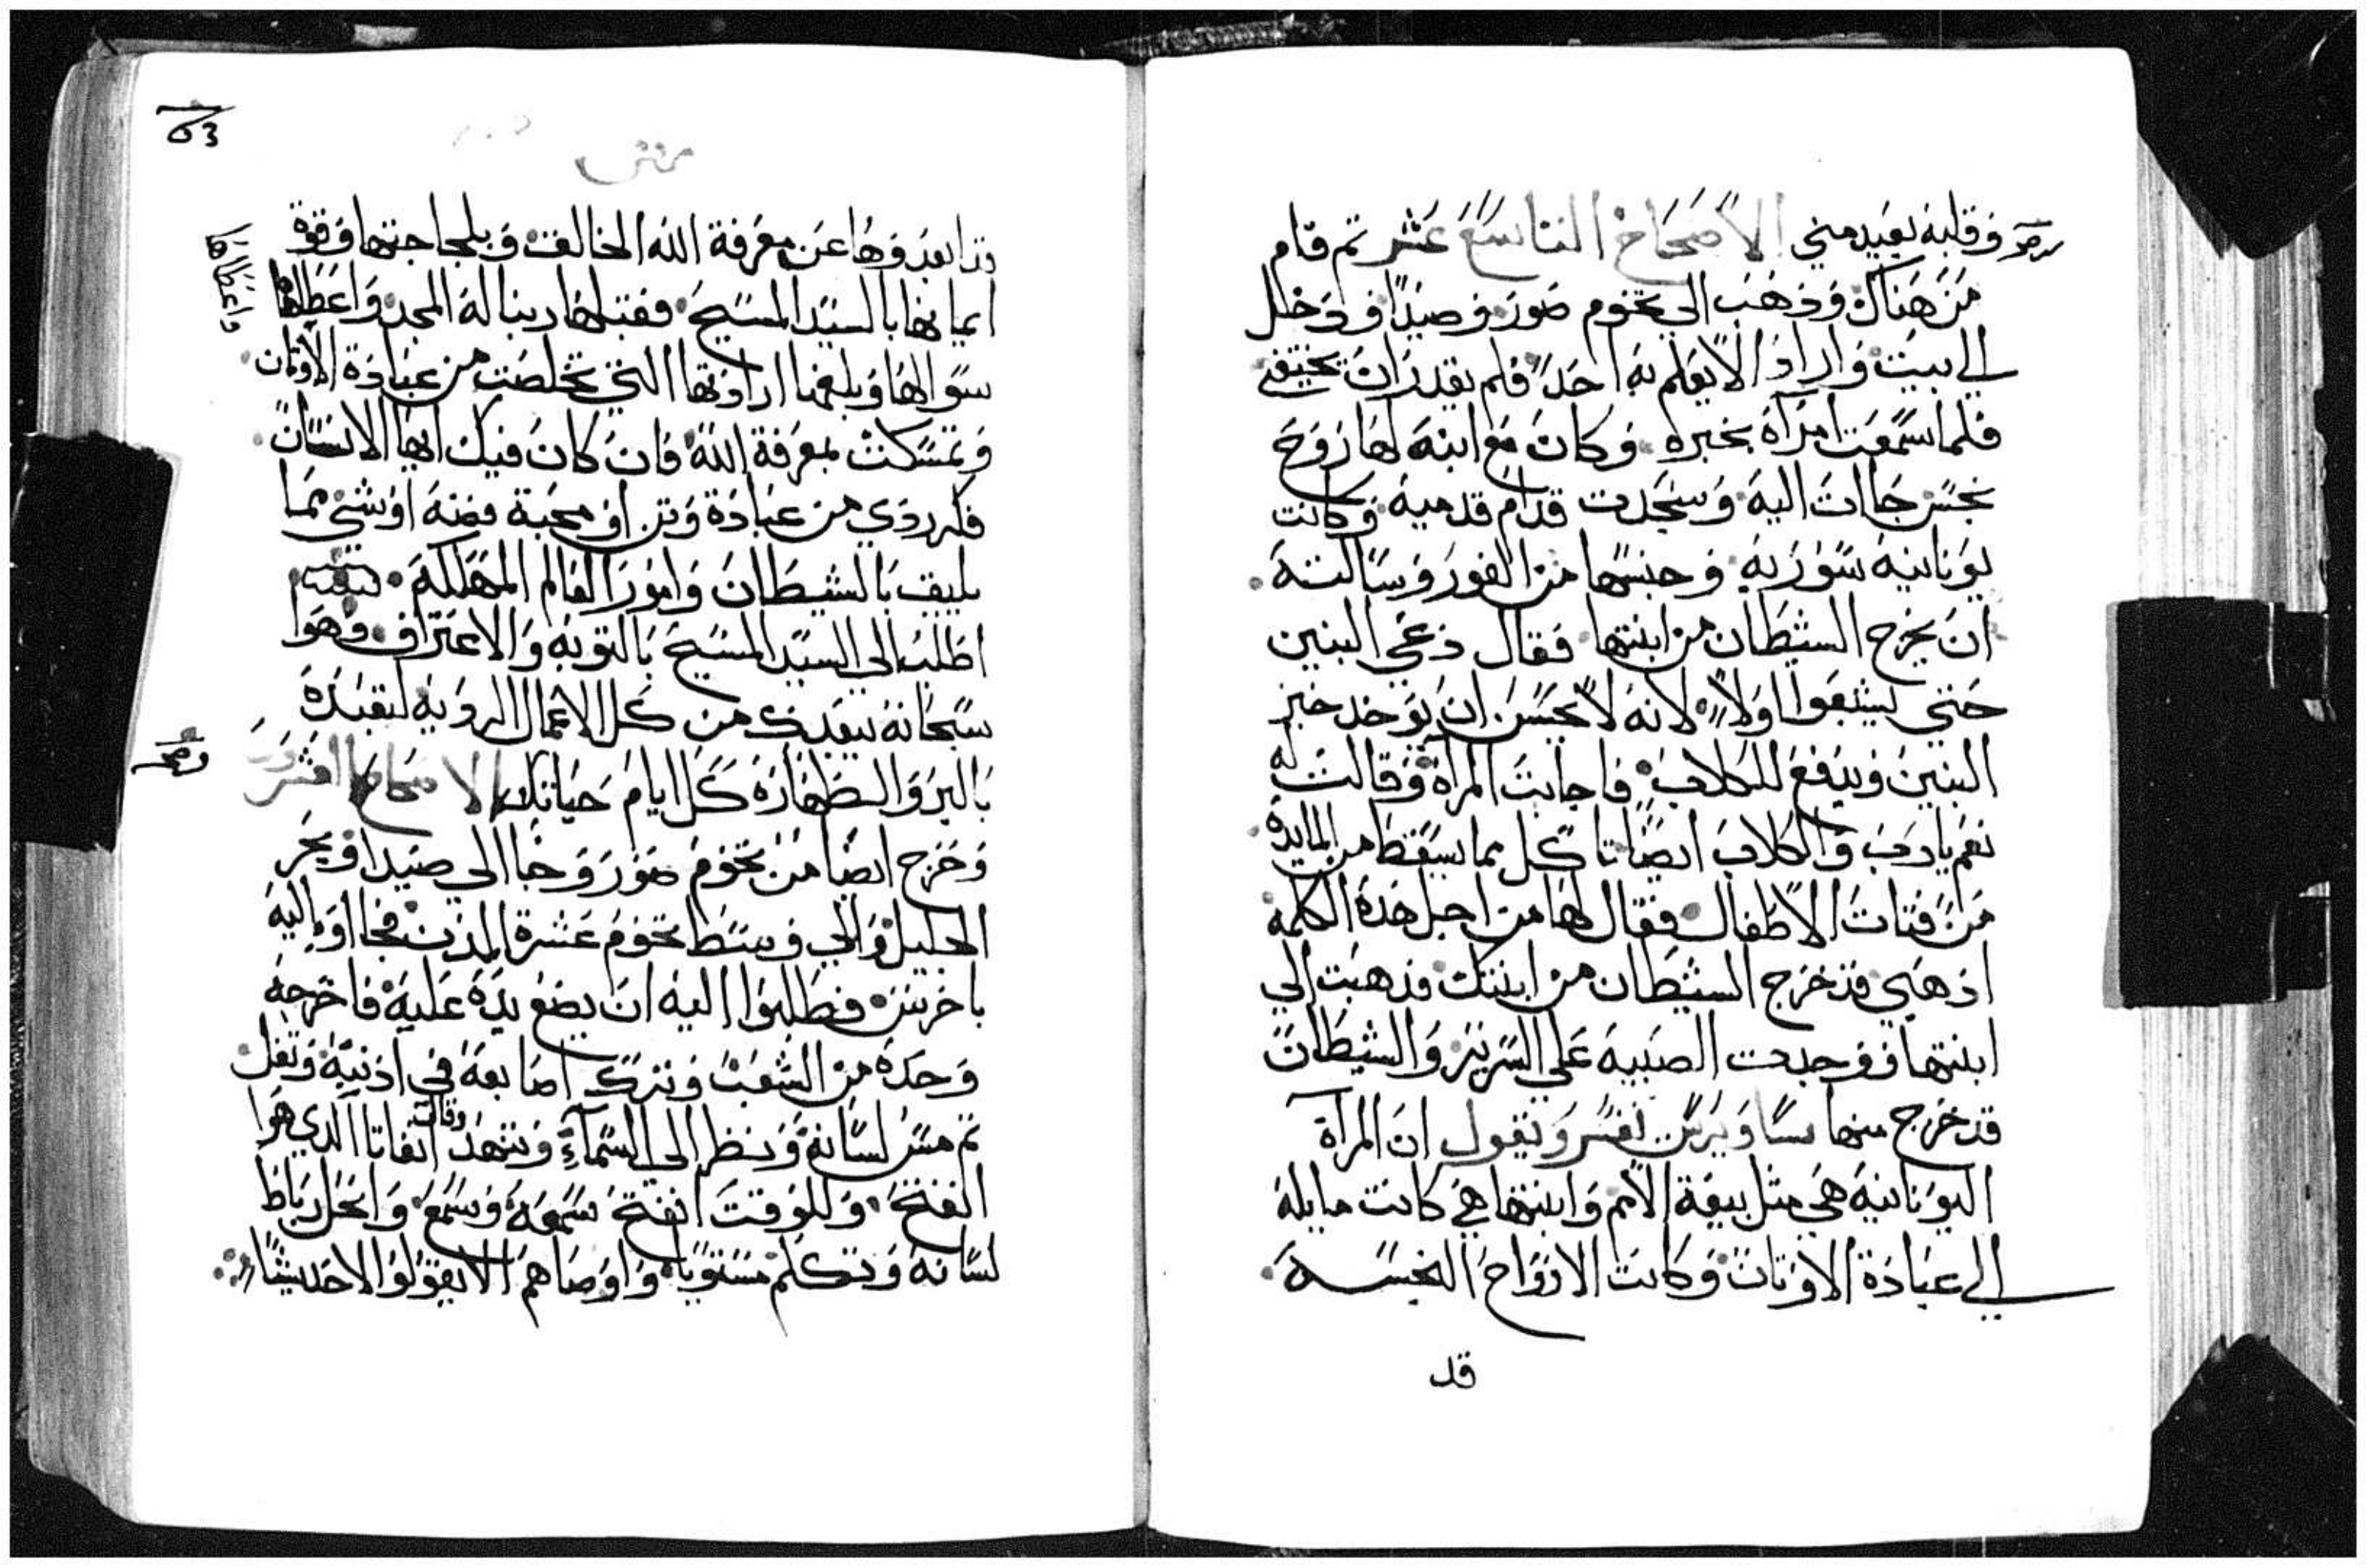 وقلبه بعيد مني الاصحاح التاسع عشر تم قام
من هناك وذهب الي تخوم صور وصيدا ودخل
الي بيت واراد الا يعلم به احد فلم يقدر ان يختفي
فلما سمعت امراة بخبره وكان مع ابنة لها روح
نجس جاات اليه وسجدت قدام قدميه وكانت
يونانيه سوريه وجنسها من الغور وسالته
ان يخرج الشيطان من ابنتها فقال دعي البنين
حتي يشبعوا اولا لانه لا يحسن ان يوخد خبز
البنين ويدفع للكلاب فاجابت المراة وقالت له
نعم يارب والكلاب ايضا تاكل مما يسقط من المايدة
من فتات الاطفال فقال لها من اجل هده الكلمة
ادهبي قد خرج الشيطان من ابنتك فدهبت الي
ابنتها فوجدت الصبية علي السرير والشيطان
قد خرج منها يفسر ويقول ان المرآة
اليونانية هي مثل بيعة الامم وابنتها هي كانت مايلة
الي عبادة الاوتان وكانت الارواح النجسة
قد
63
متي
ابعدوها عن معرفة الله الخالق وبلجاجتها وقوة
ايمانها بالسيد المسيح فقبلها ربنا له المجد واعطاها
سوالها وبلغها ارادتها التي تخلصت من عبادة الاوتان
وتمسكت بمعرفة الله فان كان فيك ايها الانسان
فكر ردي من عبادة وتن او محبة فضه او شي مما
يليق بالشيطان وامور العالم المهلكة
اطلب الي السيد المسيح بالتوبة والاعتراف وهوا
سبحانه يبعدك من كل الاعمال الردية لتعبده
بالبر والطهارة كل ايام حياتك الاصحاح العشرون
وخرج ايضا من تخوم صور وجا الي صيدا وبحر
الجليل والي وسط تخوم عشرة المدن فجااوا اليه
باخرس فطلبوا اليه ان يضع يده عليه فاخرجه
وحده من الشعب وترك اصابعه في ادنيه وتفل
تم مس لسانه ونظر الي السمآء وتنهد وقال اتفاتا الدي هوا
انفتح وللوقت انفتح سمعه وسمع وانحل رباط
لسانه وتكلم مستويا واوصاهم الا يقولوا لاحد شيا